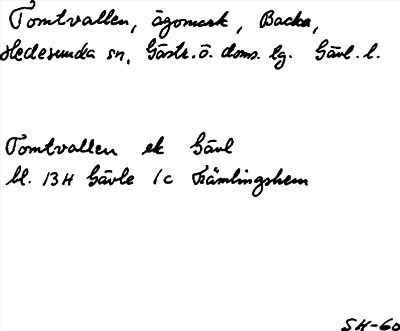 Tomtvallen, ägomark, Backa,
Hedesunda sn, Gästr. ö. doms. lg. Gävl. l.
Tomtvallen ek Gävl
bl. 13H Gävle 1c Främlingshem
SH-60